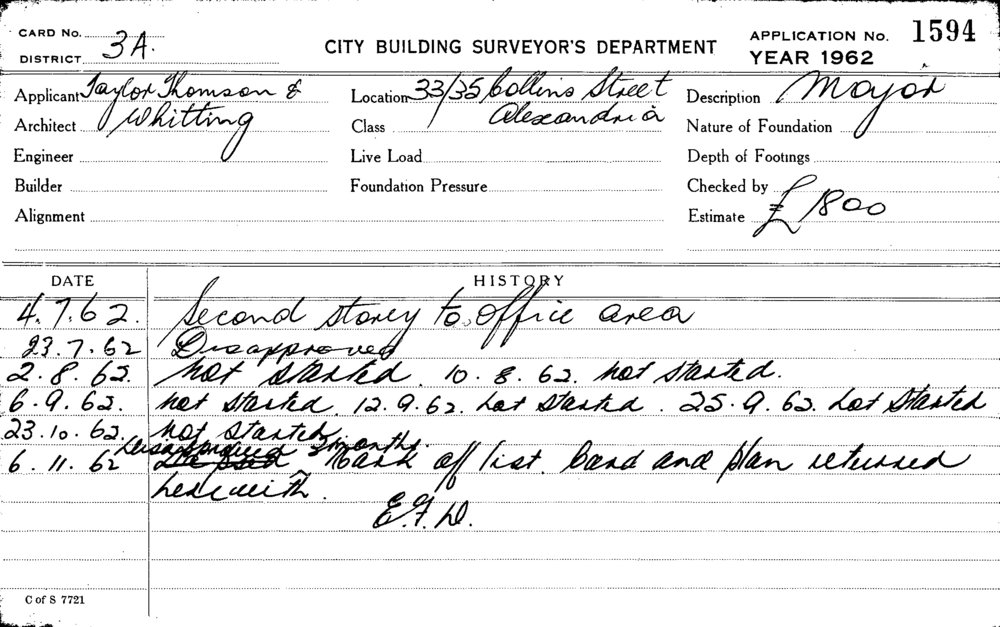 CARD No. 3A.
DISTRICT
CITY BUILDING SURVEYOR'S DEPARTMENT
APPLICATION No. 1594
YEAR 1962
Applicant Taylor Thomson &
Architect Whitting
Engineer
Builder
Alignment
Location 33/35 Collins Street
Class Alexandria
Live Load
Foundation Pressure
Description Major
Nature of Foundation
Depth of Footings
Checked by
Estimate £1800
DATE HISTORY
4.7.62. Second storey to office area
23.7.62 Disapproved
2.8.62. Not started. 10.8.62. Not started.
6.9.62. Not started. 12.9.62. Not started. 25.9.62. Not Started
23.10.62. Not started.
Disapproved 3 months.
6.11.62 Mark off list. Card and plan returned
herewith.
E.F.D.
C of S 7721